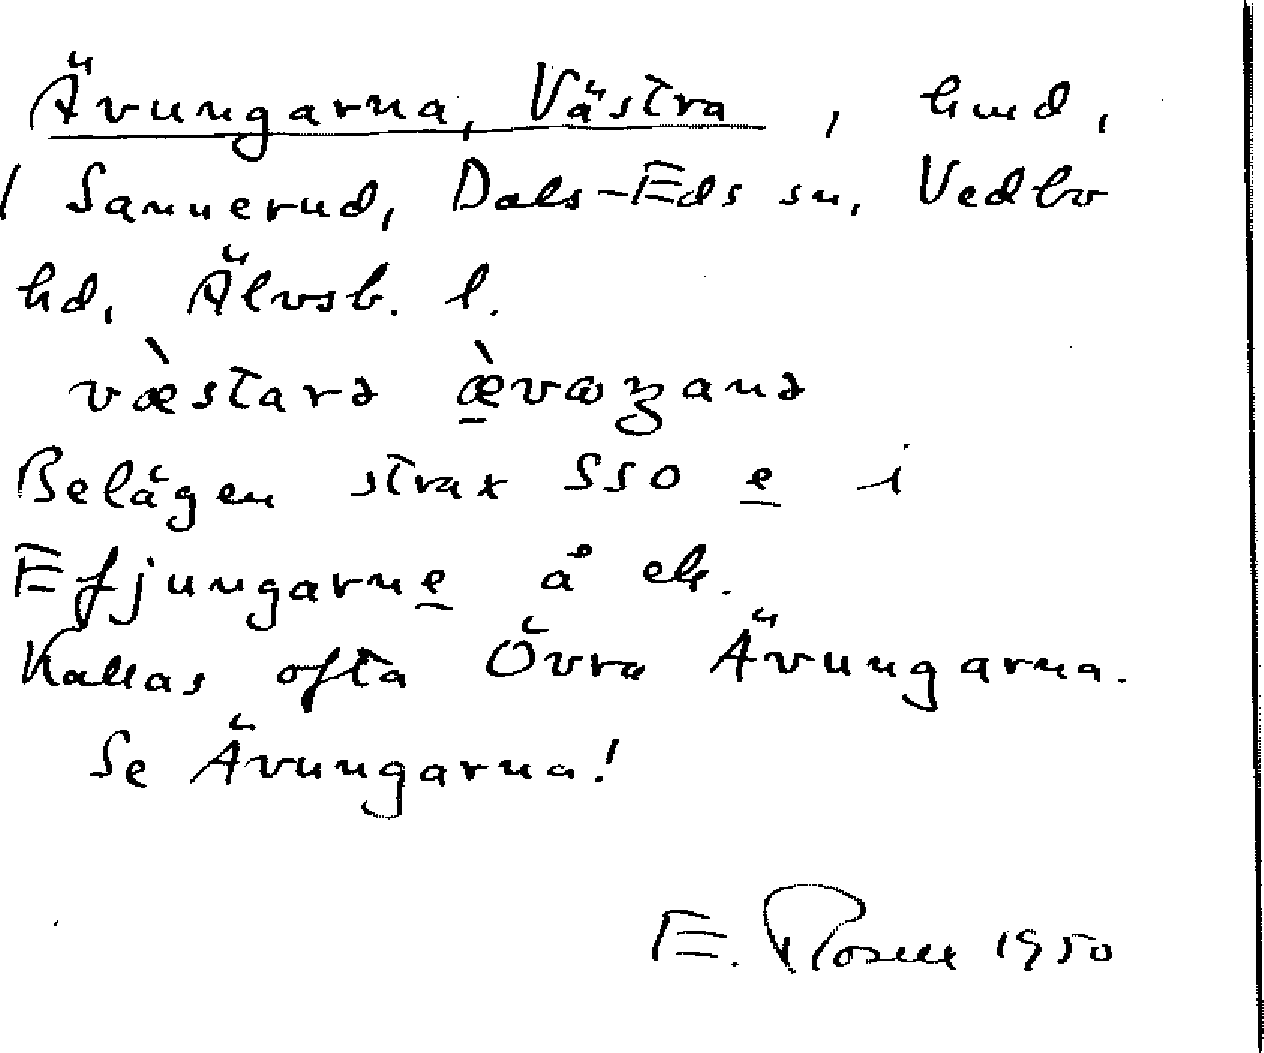 Ävungarna, Västra, hmd,
/ Sannerud, Dals-Eds sn, Vedbo
hd, Älvsb. l.
væ̀starə æ̀vωŋanə
Belägen strax SSO e i
Efjungarne å ek.
Kallas ofta Övra Ävungarna.
Se Ävungarna!
E. Rosell 1950